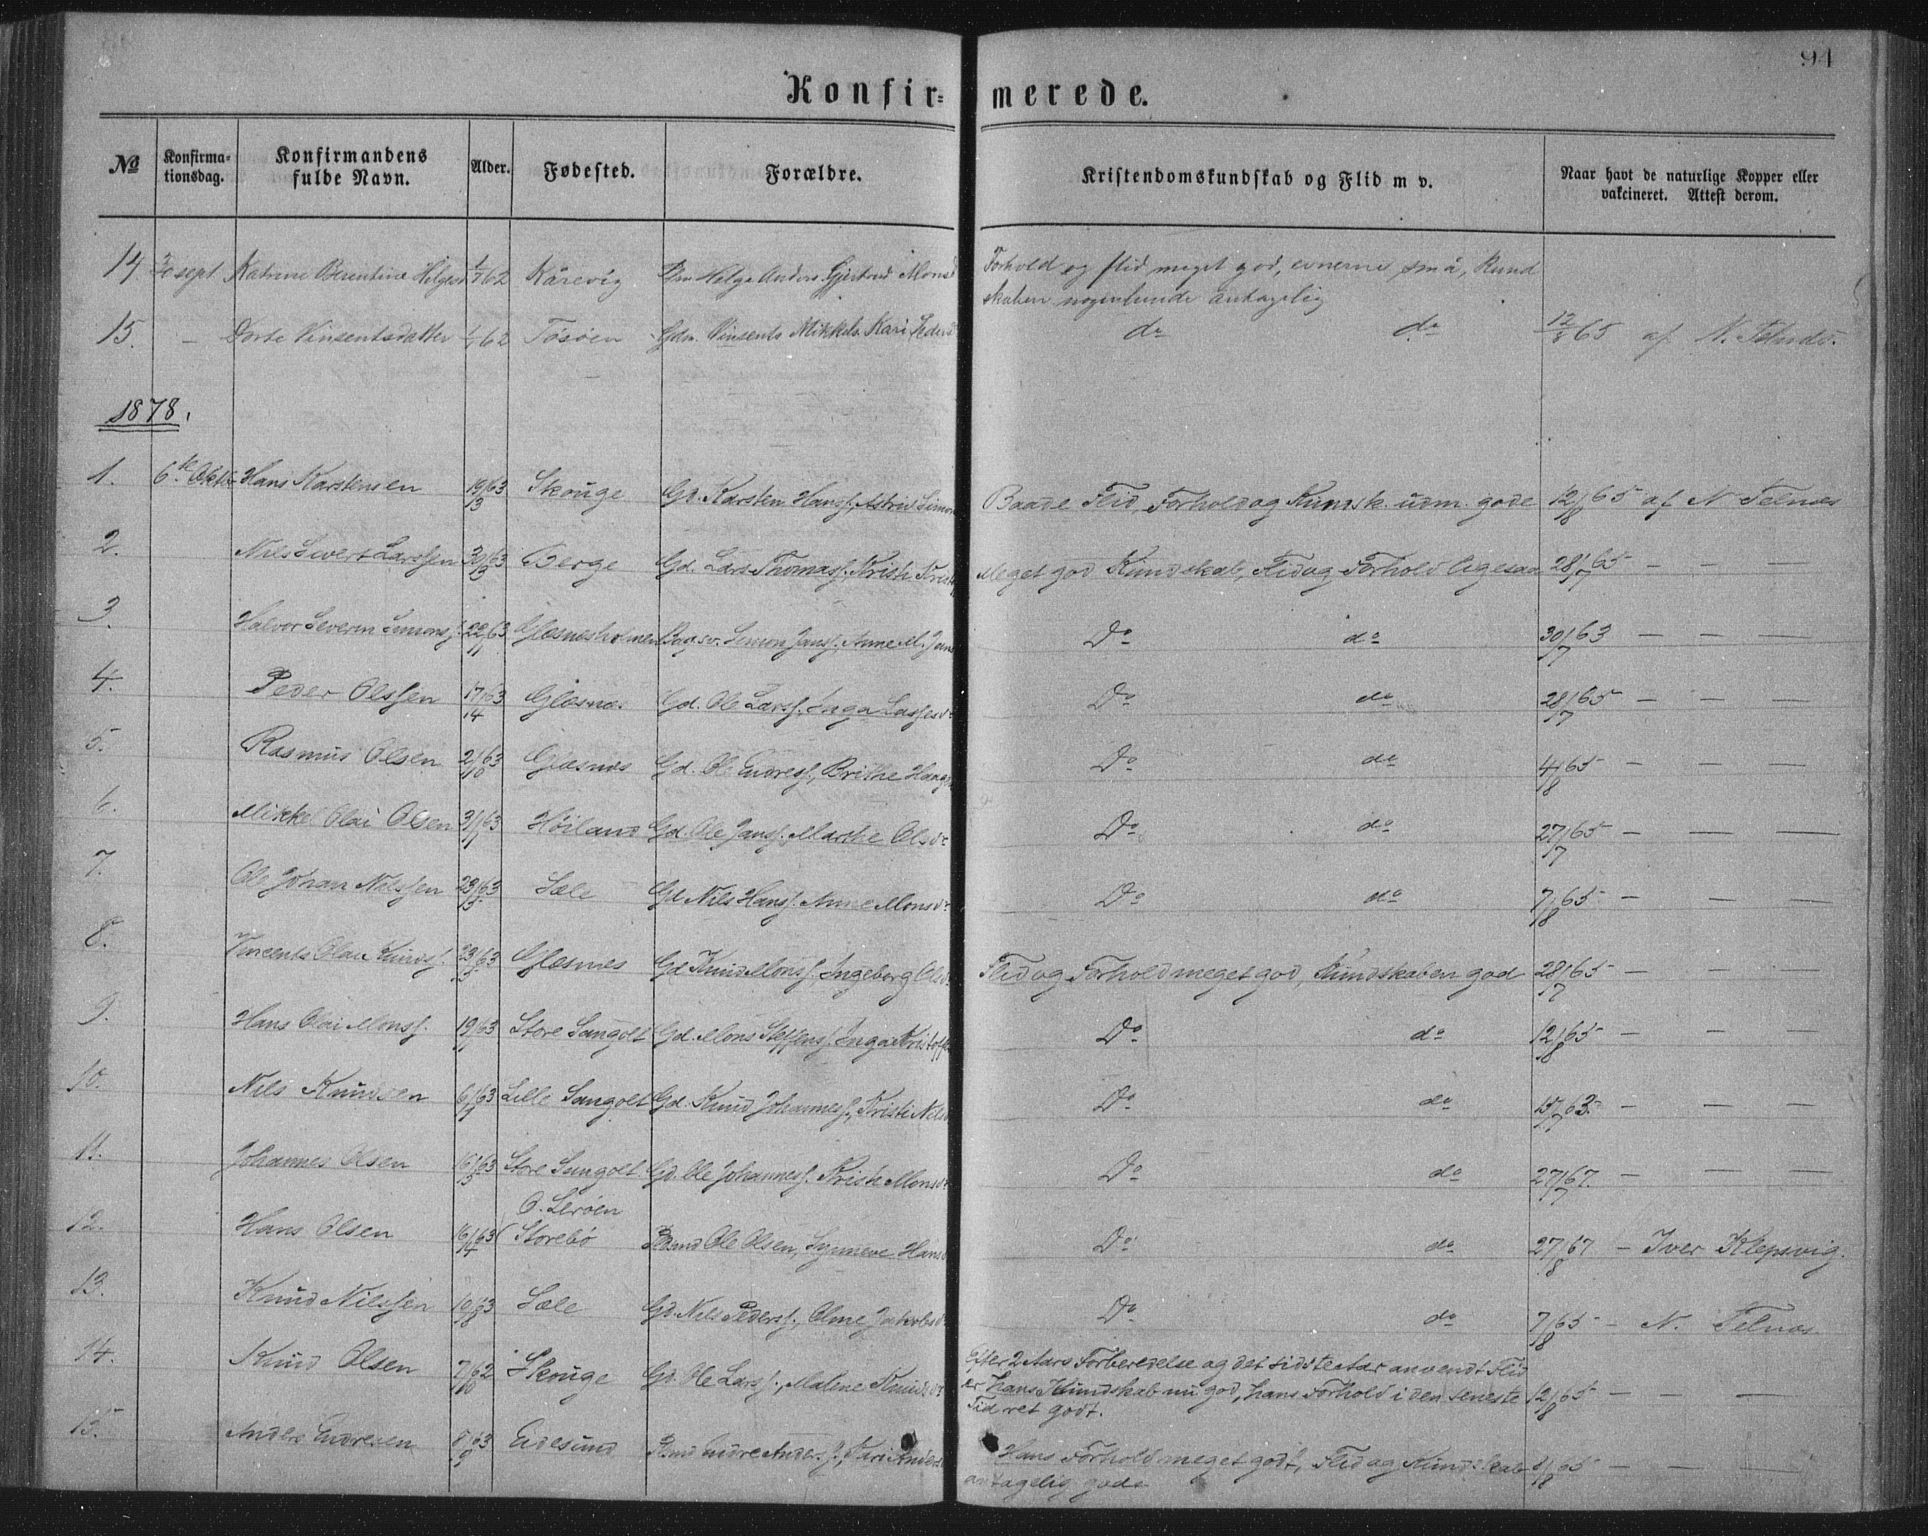 94
Konfir= merede.
No Konfirma-tionsdag. Konfirmandens fulde Navn. Alder. Fødested. Forældre. Kristendomskundskab og Flid m v. Naar havt de naturlige Kopper eller vakcineret. Attest derom.
14. 30 sept Katrine Berentine Helgesd 1/7 62 Kårevig Helge Anders. Gjertrud Monsd Forhold og flid meget god, evnerne små, Kund
skaben nogenlunde antagelig
15. — Dorte Vinsentsdatter 62 Tösöen Gdm. Vinsents Mikkels. Kari do do 12/8 65 af N. Telnæs.
1878.
1. 6te Oktbr Hans Karstensen 19/13 63 Skouge Gd. Karsten Hansf. Astrid Simon Baade Flid, Forhold og Kundsk. udm. gode 12/8 65 af N Telnæs
2. Nils Sivert Larssen 63 Berge Gd. Lars Thomasf. Kristi Meget god Kundskab, Flid og Forhold ligesaa 28/7 65 — — —
3. Halvor Severin Simonsf. 22/11 63 Glæsnesholmen Simon Jansf. Anne M. Do do 30/7 63 — — —
4. Peder Olssen 17/14 63 Glæsnæs Gd. Ole Larsf. Inga Lassesdr Do do 28/7 65 — — —
5. Rasmus Olsen 2/10 63 Glæsnæs Gd. Ole Endresf., Brithe Do do 4/8 65 — — —
6. Mikkel Olai Olsen 3/11 63 Höiland Gd. Ole Jansf. Marthe Olsdr Do do 27/7 65 — — —
7. Ole Johan Nilssen 63 Sæle Gd Nils Hansf. Anne Monsdr Do do 7/8 65 — — —
8. Vincents Olai Knudsf. 63 Glæsnes Gd Knud Monsf. Ingeborg Olsd Flid og Forhold meget god, Kundskaben god 28/7 65 — — —
9. Hans Olai Monsf. 19/11 63 Store Sangolt Gd. Mons Steffensf. Inga Do do 12/8 65 — — —
10. Nils Knudsen 63 Lille Sangolt Gd. Knud Johannesf., Kristi Nilsd Do do 15/7 63 — — —
11. Johannes Olsen 63 Store Sangolt Gd. Ole Johannesf. Kristi Monsdr Do do 27/7 67. — — —
O. Leröen
12. Hans Olsen 16/4 63 Storebø Ole Olsen, Synneve Hansd Do do 27/8 67 — Iver Klepsvig.
13. Knud Nilssen 10/8 63 Sæle Gd. Nils Pedersf., Jakobsd Do do 7/8 65 — N. Telnæs
14. Knud Olsen 7/10 62 Skouge Gd. Ole Larsf., Malene Knudsdr Efter 2 Aars Forberedelse og det sidste Aar anvendt Flid
er hans Kundskab nu god, hans Forhold i den seneste 12/8 65 — — —
Tid ret godt.
15. Anders Endresen 8/9 63 Eidesund Endre Andersf., Kari Anders Hans Forhold meget godt, Flid og Kundskab 65 — — —
antagelig gode